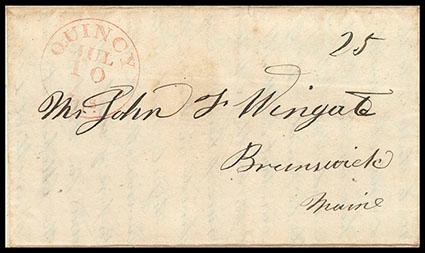 QUINCY
JUL
10
25
Mr John F Wingate
Brunswick
Maine